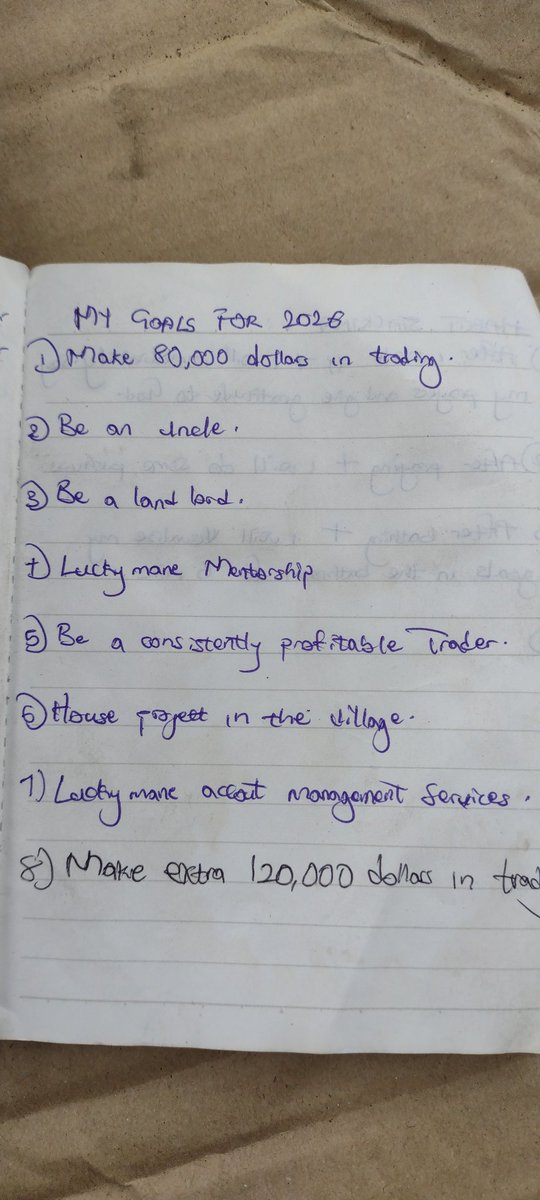 MY GOALS FOR 2026
1) Make 80,000 dollars in trading.
2) Be an uncle.
3) Be a land lord.
4) Luckymane Mentorship
5) Be a consistently profitable Trader.
6) House project in the village.
7) Luckymane accout management Services.
8) Make extra 120,000 dollars in trad